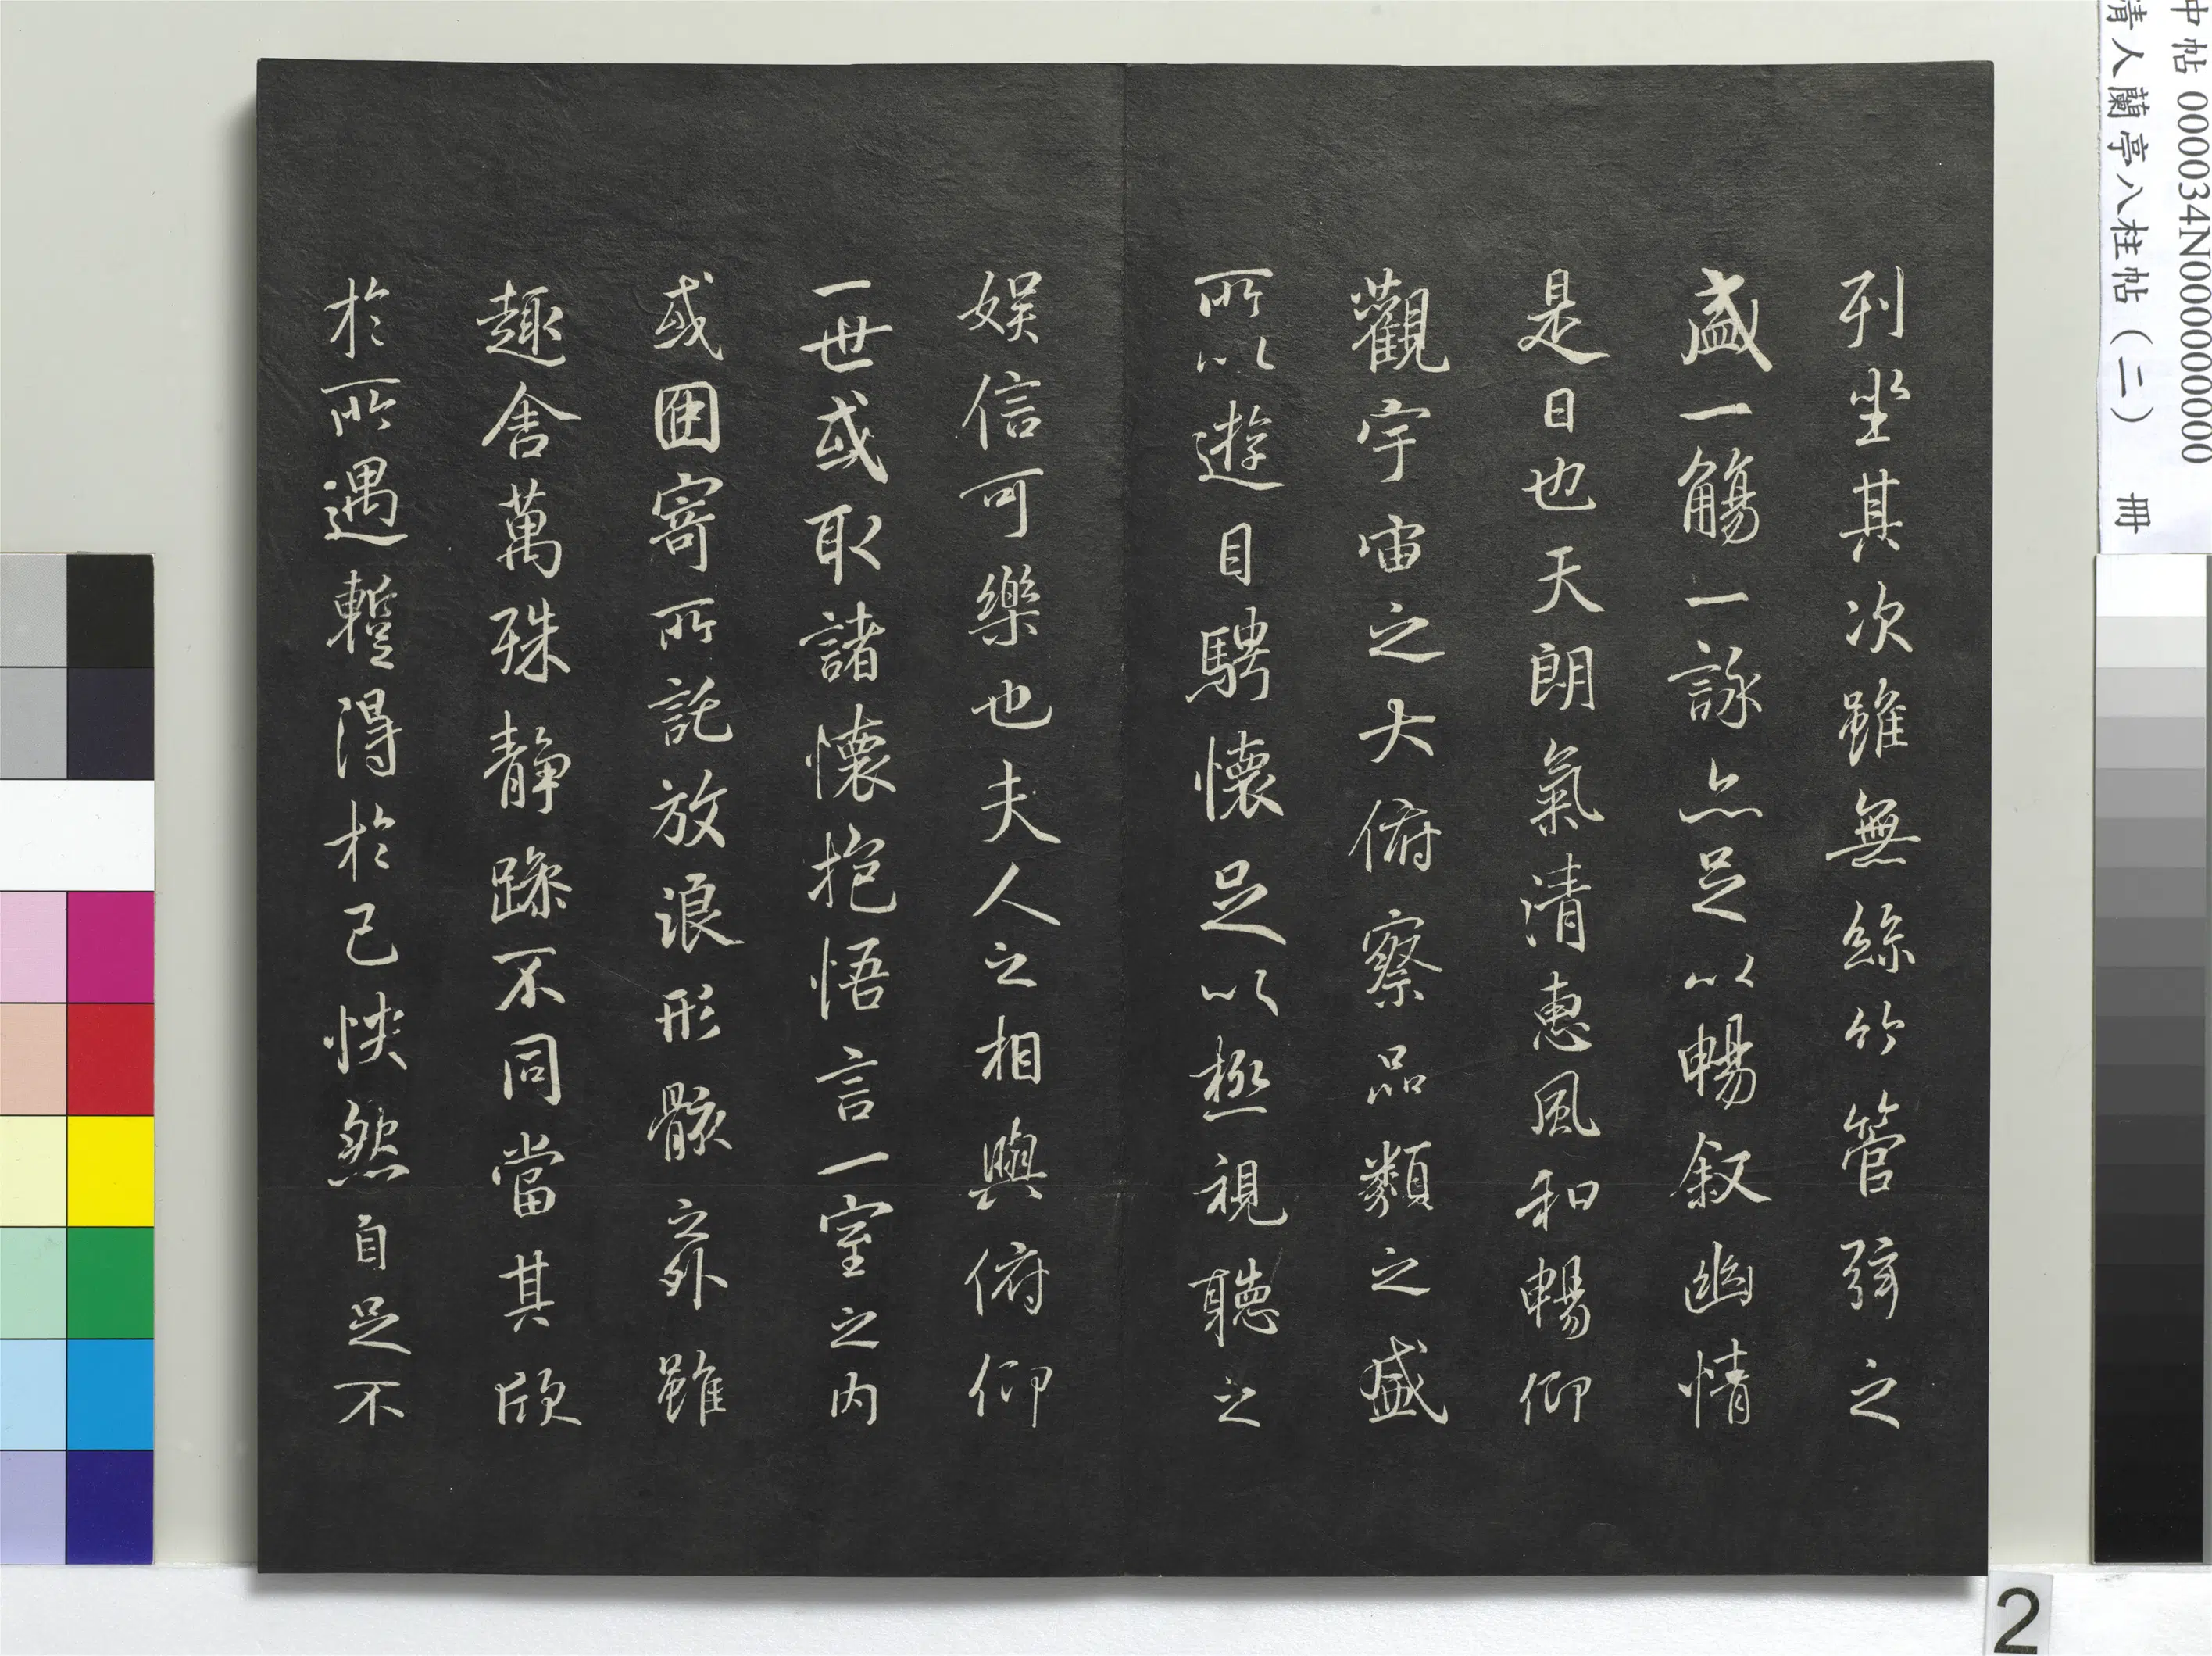 中帖 000034N000000000
清人蘭亭八柱帖（二） 冊
列坐其次雖無絲竹管弦之
盛一觴一詠亦足以暢叙幽情
是日也天朗氣清惠風和暢仰
觀宇宙之大俯察品類之盛
所以遊目騁懷足以極視聽之
娛信可樂也夫人之相與俯仰
一世或取諸懷抱悟言一室之内
或因寄所託放浪形骸之外雖
趣舍萬殊静躁不同當其欣
於所遇蹔得於己怏然自足不
2